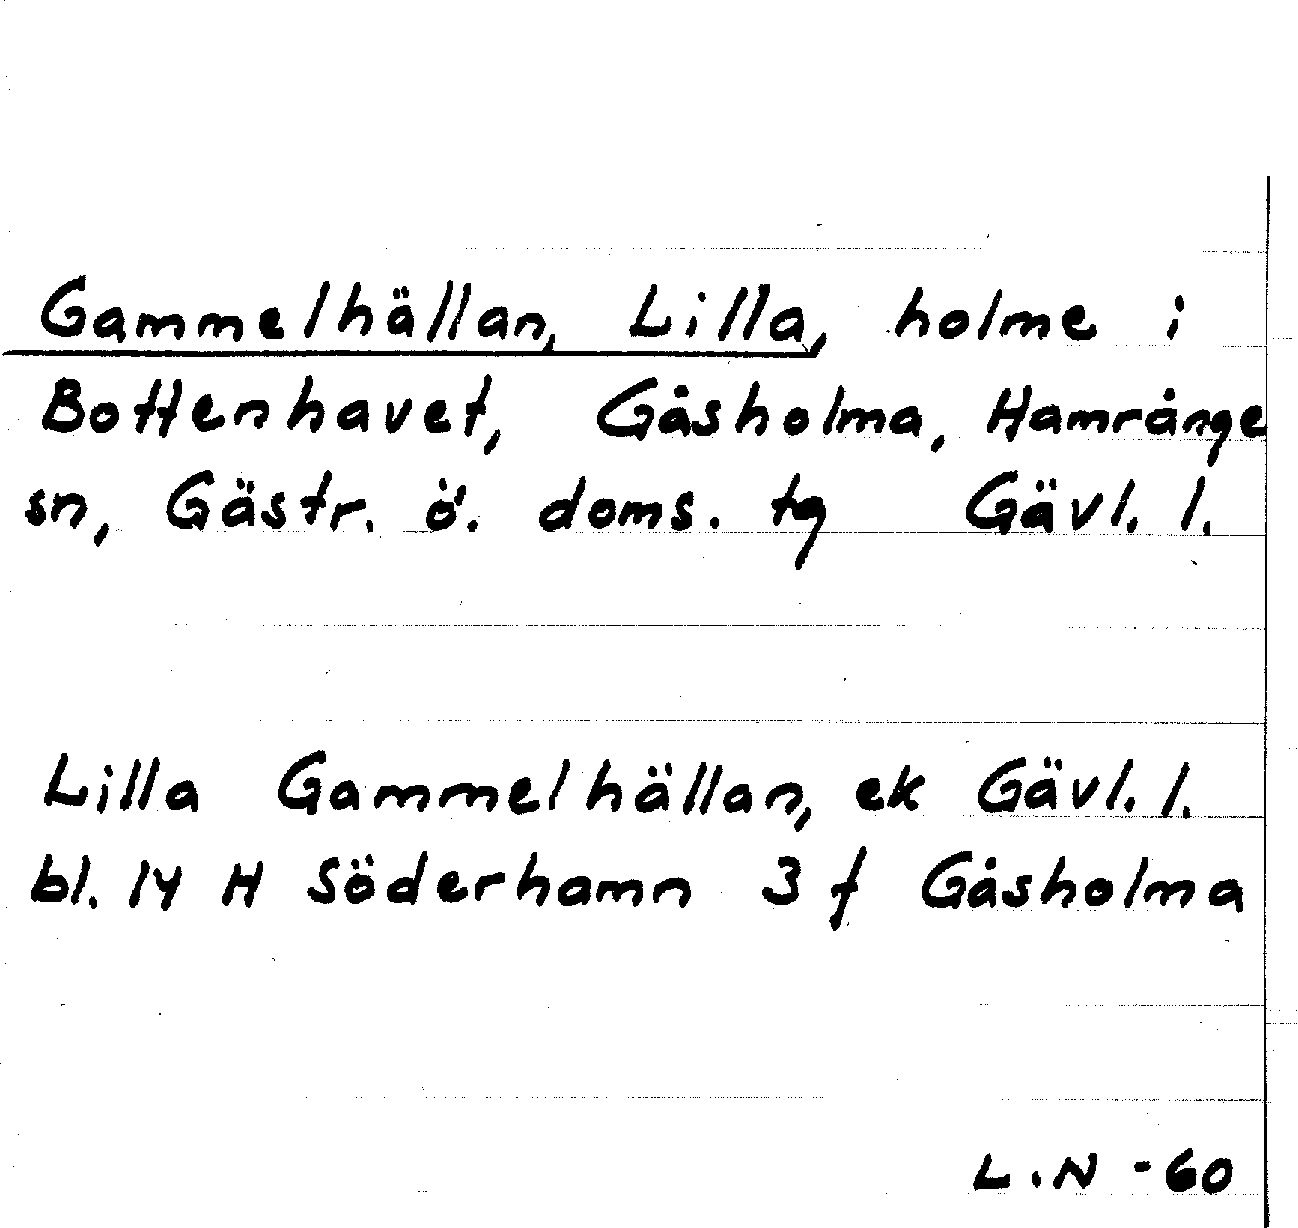 Gammelhällan, Lilla, holme i
Bottenhavet, Gåsholma, Hamrånge
sn, Gästr. ö. doms. tg Gävl. l.
Lilla Gammelhällan, ek Gävl. l.
bl. 14 H Söderhamn 3 f Gåsholma
L.N -60